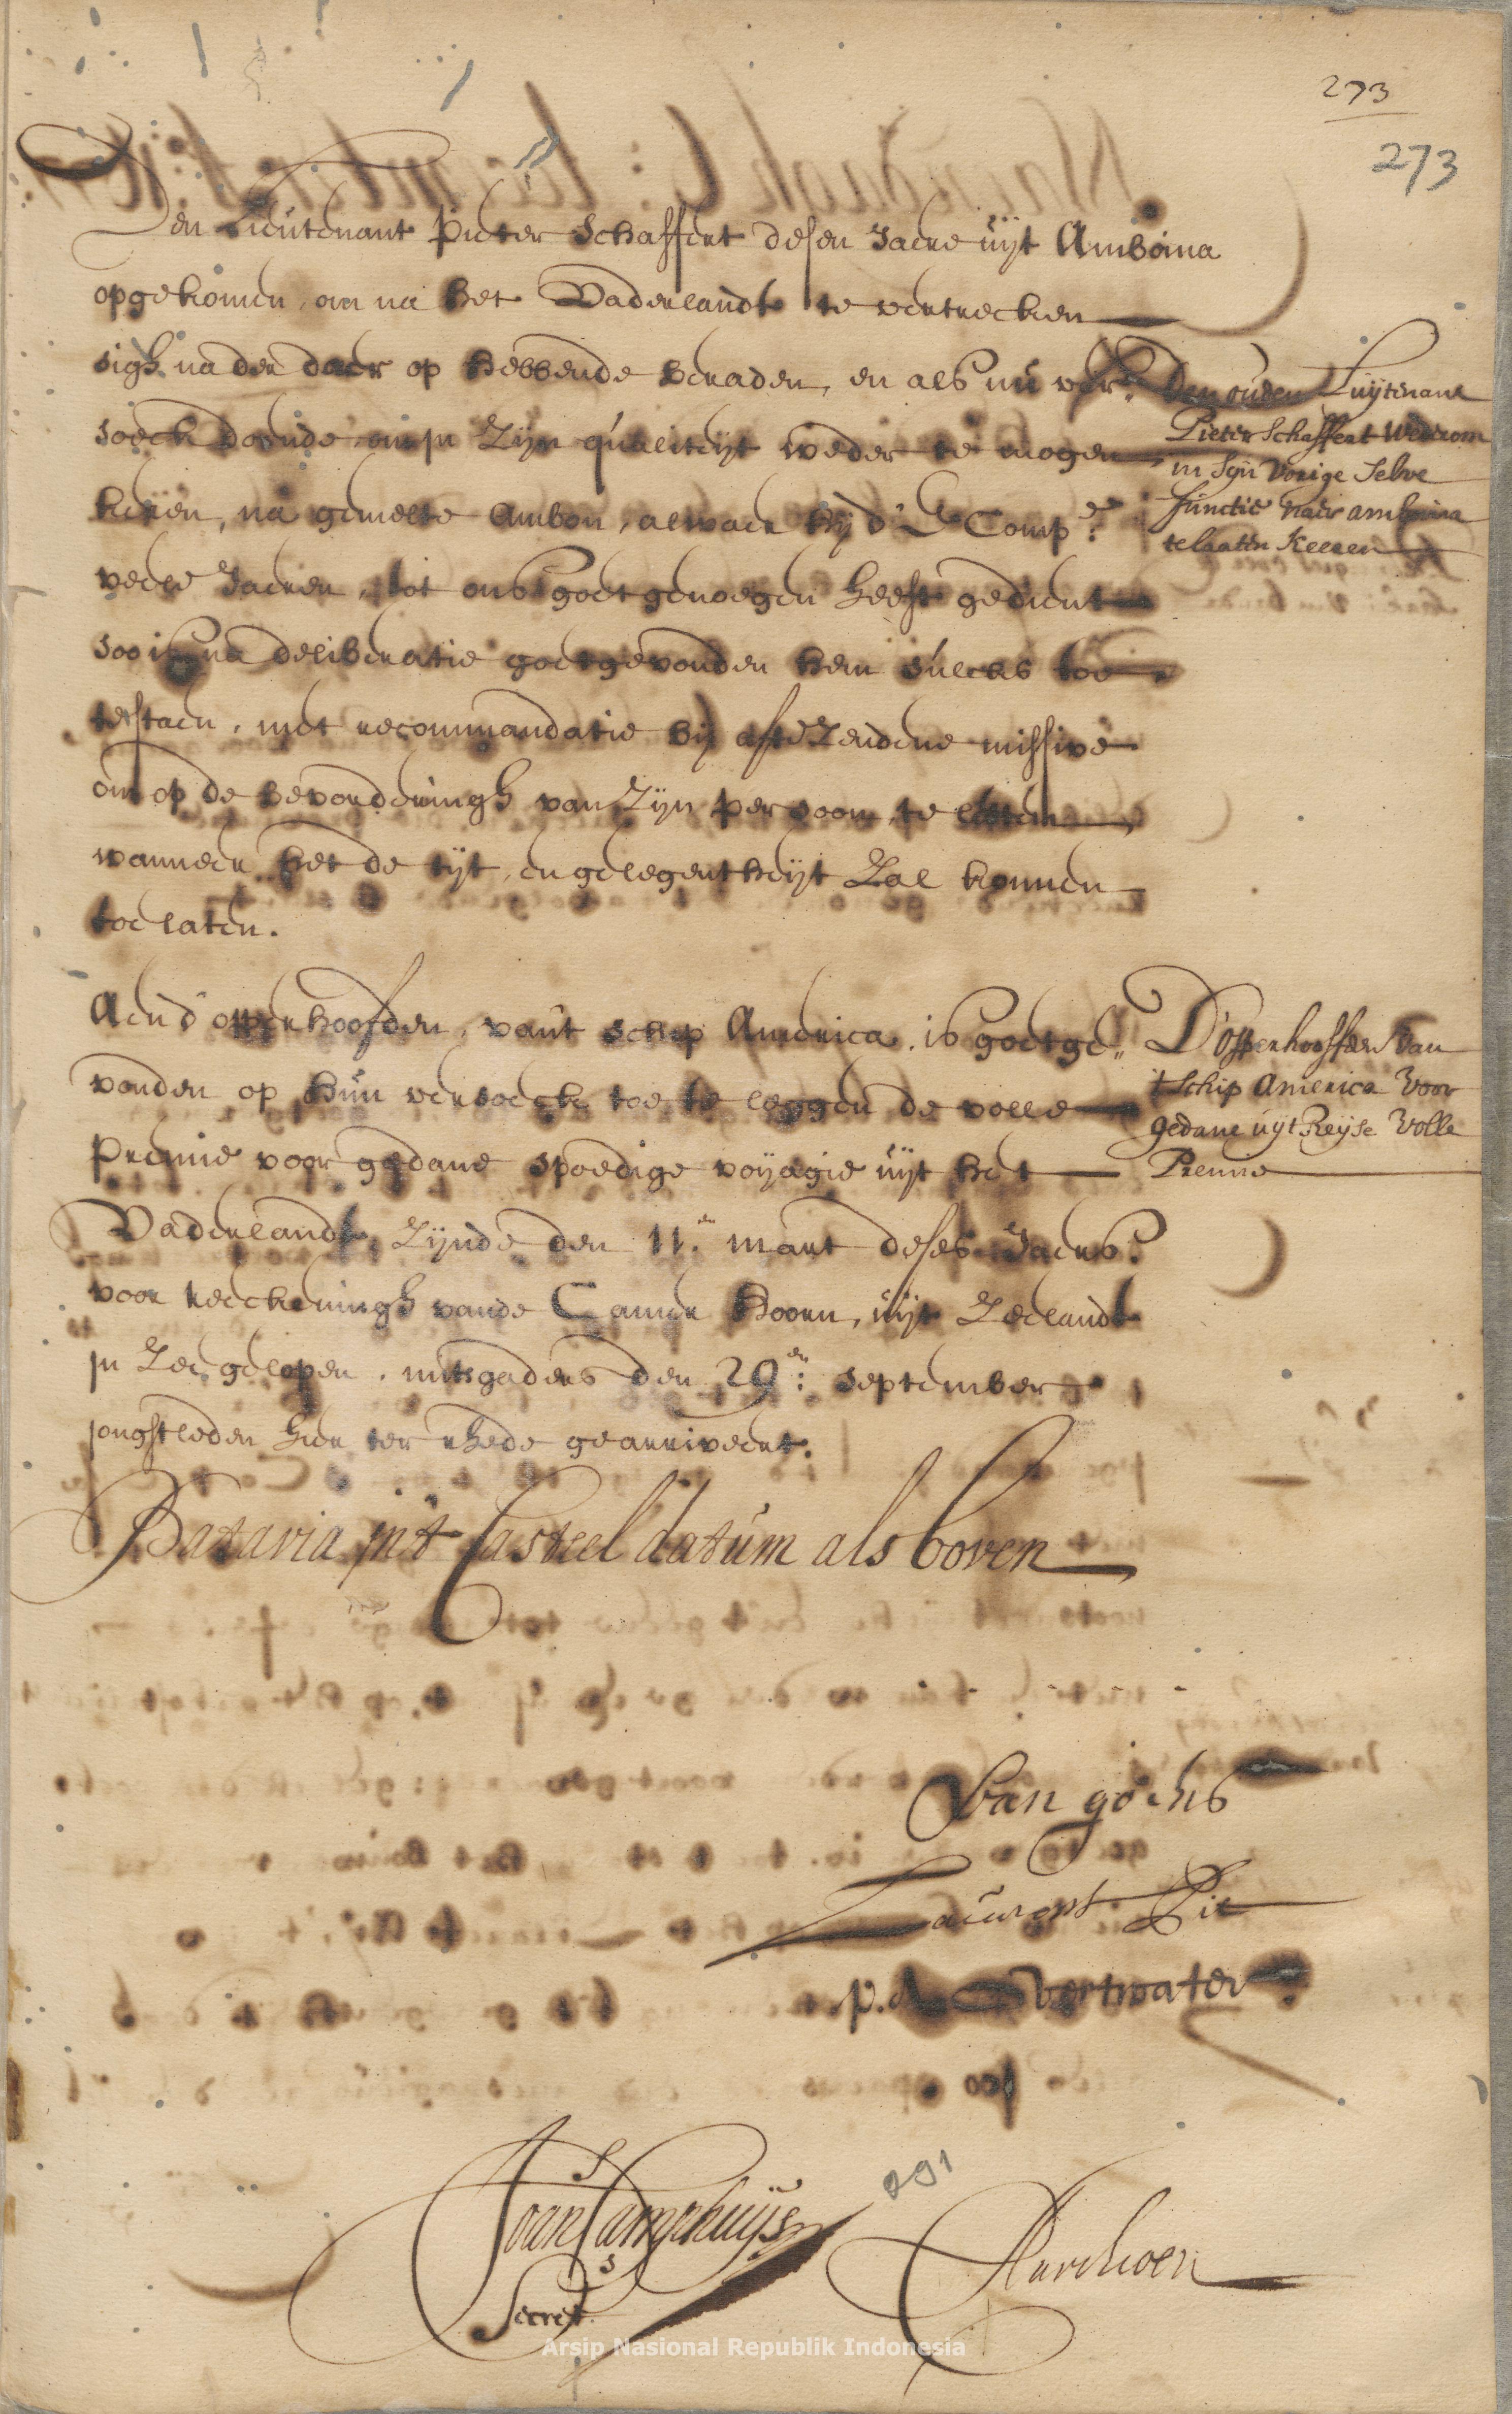 273
273
Den Lieutenant Pieter Schaffert desen Jaere uijt Amboina
opgekomen, om na het Vaderlandt te vertrecken
sigh nader daer op hebbende beraden, en als nu ver„
soeck doende om in zijn qualiteijt weder te mogen
keren, na gemelte Ambon, alwaer hij d' E Comp:e
veele Jaeren, tot ons goet genoegen heeft gedient
soo is na deliberatie goetgevonden hem sulcks toe
testaen, met recommandatie bij aftezendene missive
om op de bevorderingh van zijn persoon te letten
wanneer het de tijt, en gelegentheijt zal konnen
toelaten.
Den ouden Luijtenant
Pieter Schaffert wederom
in sijn vorige selve
functie naer amboina
te laaten keeren
Aen d' opperhoofden, vant schip America, is goetge„
vonden op hun versoeck toe te leggen de volle
premie voor gedane spoedige voijagie uijt het
Vaderlandt, zijnde den 11:en mart deses Jaers
voor reeckeningh vande Camer Hoorn, uijt Zeelandt
in Zee gelopen, mitsgaders den 29:en september
jongstleden hier ter rhede gearriveert.
D'opperhoofden van
't schip America voor
gedane uijt Reijse volle
Premie
Batavia in't Casteel datum als boven
Van goens
Laurens Pit
p. A. Overtwater
Joan Camphuijs
Secret.
291
A Verhoen
Arsip Nasional Republik Indonesia